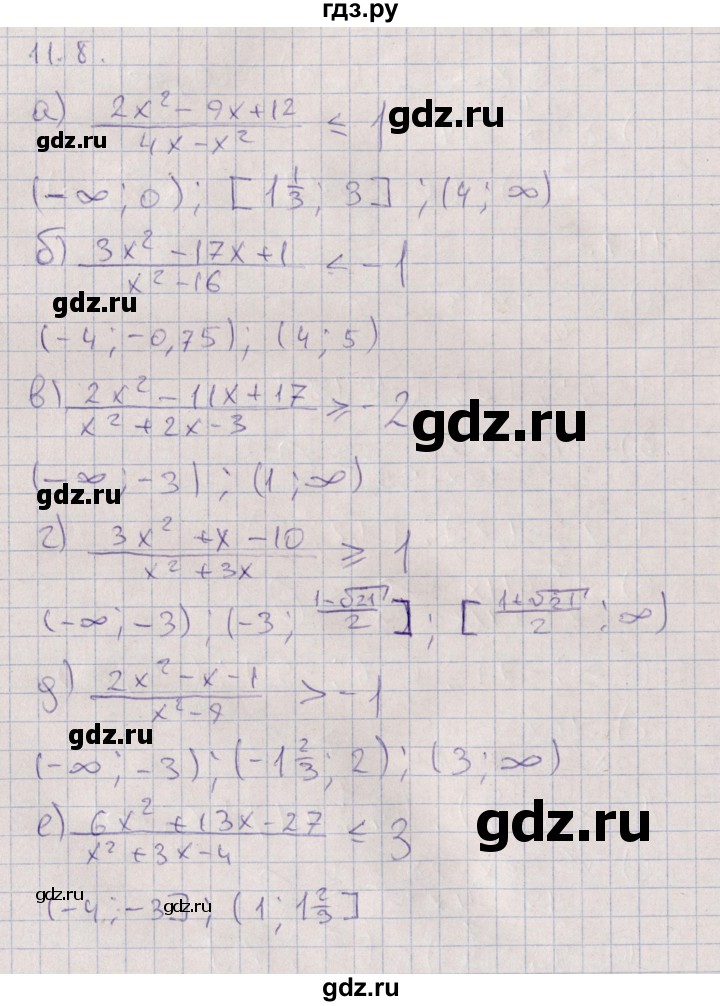 гдз.ру
11.8.
а) (2x² - 9x + 12)/(4x - x²) ≤ 1 gdz.ru
gdz.ru
(-∞; 0); [1 1/3; 3]; (4; ∞)
б) (3x² - 17x + 1)/(x² - 16) < -1
gdz.ru
(-4; -0,75); (4; 5)
в) (2x² - 11x + 17)/(x² + 2x - 3) ≥ -2 gdz.ru
(-∞; -3); (1; ∞)
gdz.ru
г) (3x² + x - 10)/(x² + 3x) ≥ 1
(-∞; -3); (-3; (1-√21)/2]; [(1+√21)/2; ∞)
д) (2x² - x - 1)/(x² - 9) > -1
gdz.ru
(-∞; -3); (-1 2/3; 2); (3; ∞)
е) (6x² + 13x - 27)/(x² + 3x - 4) ≤ 3 gdz.ru
gdz.ru gdz.ru
(-4; -3]; (1; 1 2/3]
gdz.ru